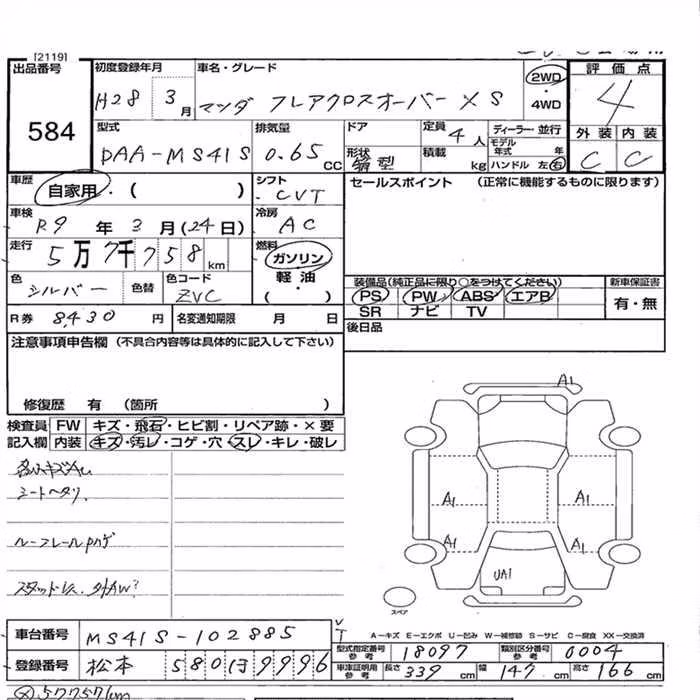 [2119]
出品番号
584
初度登録年月
H28 3月
車名・グレード
マツダ フレアクロスオーバー XS
2WD
・
4WD
評価点
4
外装 内装
C C
型式
DAA-MS41S
排気量
0.65 CC
ドア
形状 箱型
定員 4人
積載 kg
ディーラー・並行
モデル年式 年
ハンドル 左 右
車歴
自家用・( )
シフト
CVT
セールスポイント (正常に機能するものに限ります)
車検
R9年 3月(24日)
冷房
AC
走行
5万7千758km
燃料
ガソリン
軽・油
・( )
色
シルバー
色替
色コード
ZVC
装備品(純正品に限り○をつけてください)
新車保証書
PS PW ABS エアB
有・無
SR ナビ TV
R券 8,430円
名変通知期限 月 日
後日品
注意事項申告欄 (不具合内容等は具体的に記入して下さい)
修復歴 有 (箇所 )
検査員 FW キズ・飛石・ヒビ割・リペア跡・×要
記入欄 内装 キズ・汚レ・コゲ・穴・スレ・キレ・破レ
シートヘタリ、
ルーフレールハゲ
A1
A1 A1
A1 A1
UA1
スペア
A－キズ E－エクボ U－凹み W－補修跡 S－サビ C－腐食 XX－交換済
車台番号 MS41S-102885
型式指定番号 18097
類別区分番号 0004
登録番号 松本 580ほ9996
車庫証明用参考 長さ 339cm 幅 147cm 高さ 166cm
57757km